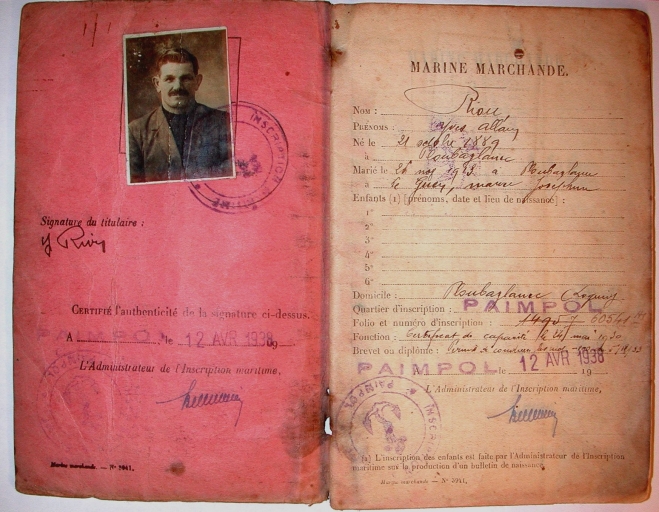 INSCRIPTION MARITIME
Signature du titulaire :
Y Riou
CERTIFIÉ l'authenticité de la signature ci-dessus.
A PAIMPOL, le 12 AVR 1938
L'Administrateur de l'Inscription maritime,
Marine marchande. — N° 3941.
MARINE MARCHANDE.
NOM : Riou
PRÉNOMS : Yves Allain
Né le 21 octobre 1889
à Ploubazlanec
Marié le 26 nov 1913 à Ploubazlanec
à Le
Enfants (1) [prénoms, date et lieu de naissance] :
1°
2°
3°
4°
5°
6°
Domicile : Ploubazlanec
Quartier d'inscription : PAIMPOL
Folio et numéro d'inscription :
Fonction : Certificat de capacité le mai 1930
Brevet ou diplôme : Permis de
PAIMPOL le 12 AVR 1938 19
L'Administrateur de l'Inscription maritime,
PAIMPOL INSCRIPTION
(1) L'inscription des enfants est faite par l'Administrateur de l'Inscription
maritime sur la production d'un bulletin de naissance.
Marine marchande. — N° 3941.